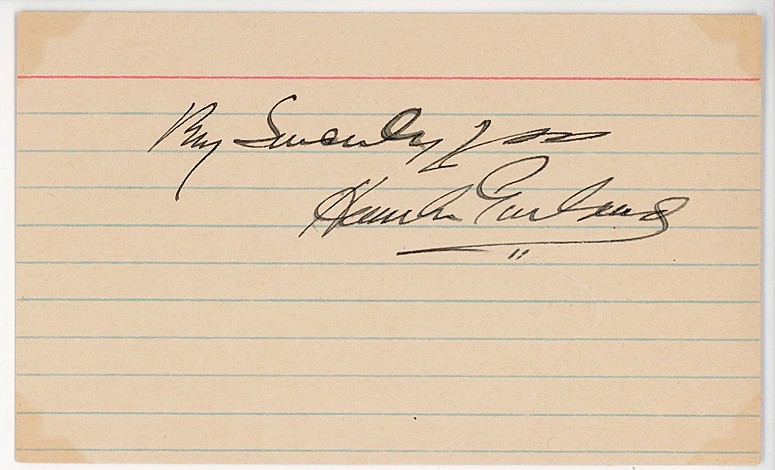 Very Sincerely Yours
Hamlin Garland